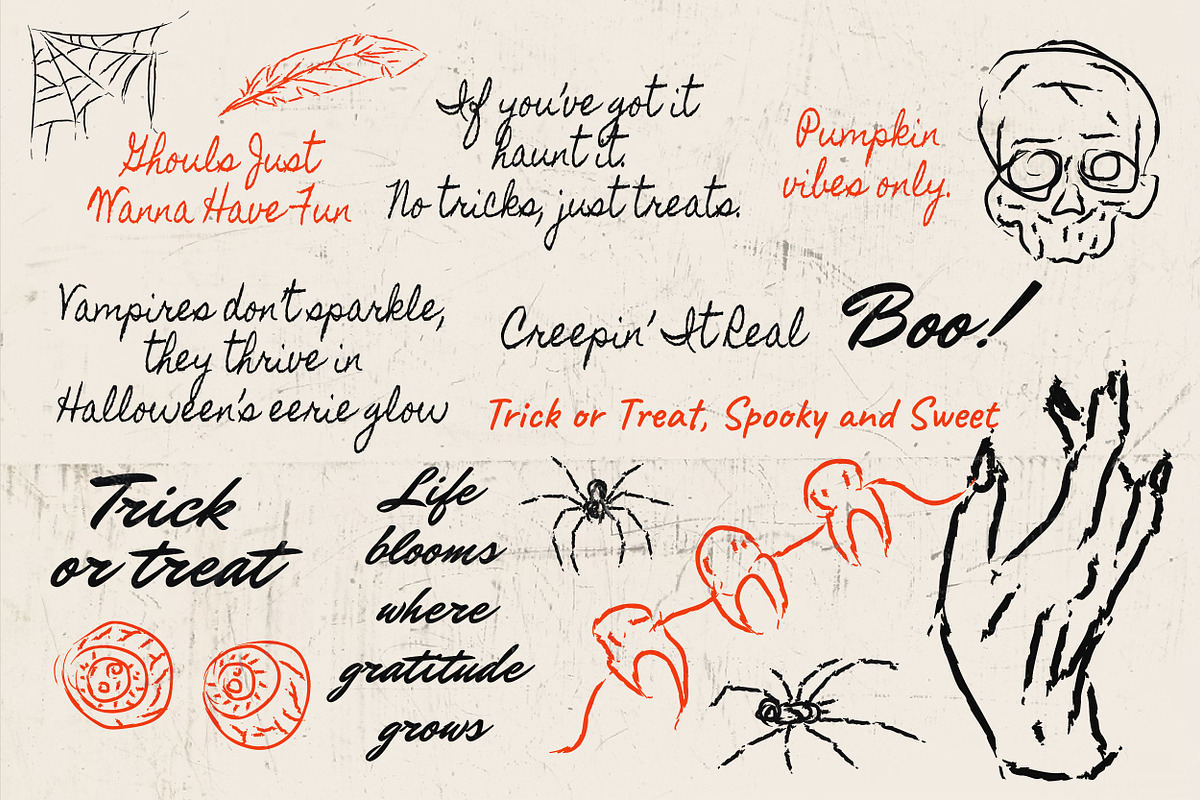 Ghouls Just
Wanna Have Fun
If you've got it
haunt it.
No tricks, just treats.
Pumpkin
vibes only.
Vampires don't sparkle,
they thrive in
Halloween's eerie glow
Creepin' It Real
Boo!
Trick or Treat, Spooky and Sweet
Trick
or treat
Life
blooms
where
gratitude
grows